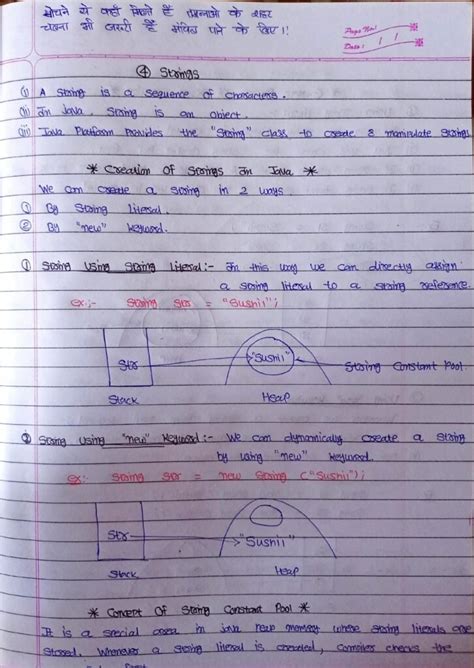 सोचने से कहाँ मिलते हैं तमन्नाओं के शहर
चलना भी जरुरी है मंजिल पाने के लिए।।
Page No:
Date: / /
④ Strings
(i) A string is a sequence of characters.
(ii) In Java, string is an object.
(iii) Java Platform Provides the "String" class to create & manipulate strings
* Creation Of Strings In Java *
We can create a string in 2 ways
① By String literal.
② By "new" keyword.
① String Using String literal:- In this way we can directly assign
a string literal to a string reference.
ex:- String str = "Sushil";
Str
"Sushil"
String Constant Pool
Stack
Heap
② String Using "new" keyword:- We can dynamically create a string
by using "new" keyword.
ex:- String str = new String ("Sushil");
Str
"Sushil"
Stack
Heap
* Concept Of String Constant Pool *
It is a special area in java heap memory where string literals are
stored. Whenever a string literal is created, compiler checks the